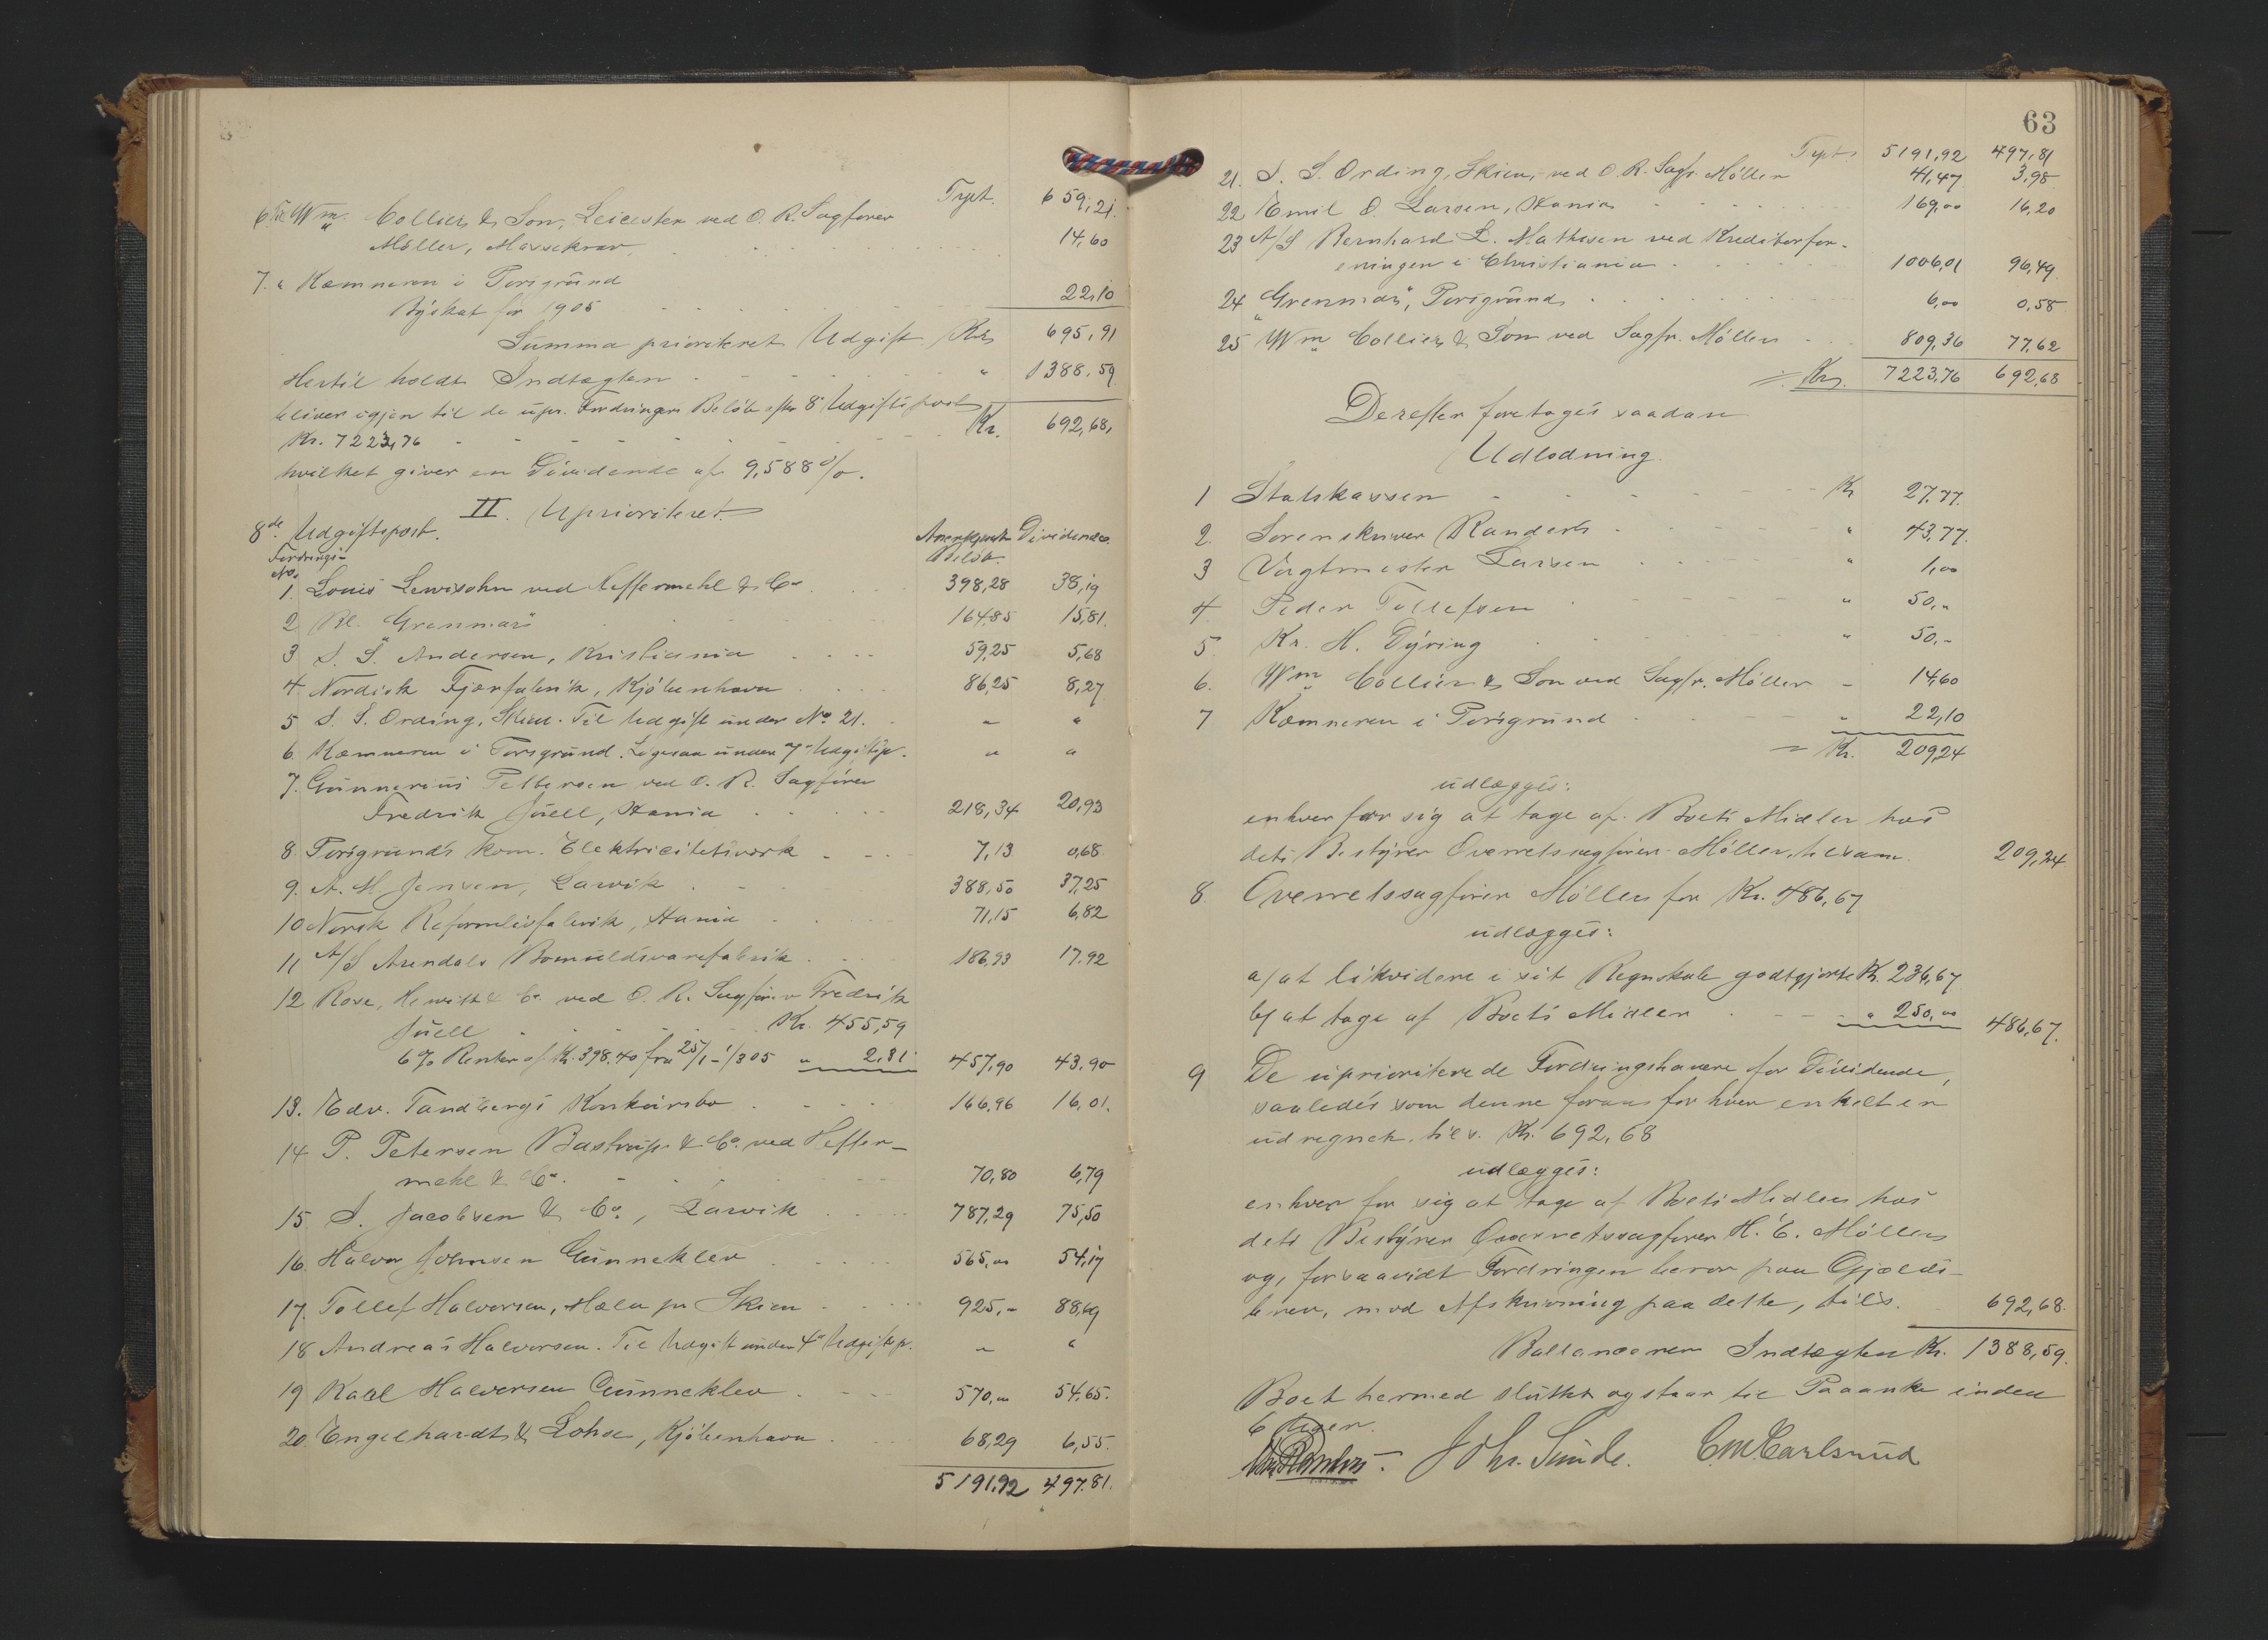 Trpt. 659,21
6te Wm Collier & Son, Leicester ved O. R. Sagfører
Møller, Massekrav 14,60
7. " Kæmneren i Porsgrund
Byskat for 1905 22,10
Summa prioriteret Udgift Kr. 695,91
Hertil holdt Indtægten " 1388,59
bliver igjen til de upr. Fordringers Beløb efter 8de Udgiftspost
Kr. 7223,76 Kr. 692,68
hvilket giver en Dividende af 9,588 %.
II. Uprioriteret.
8de Udgiftspost.
Fordrings-
No.
Anerkjendt Beløb. Dividende.
1. Louis Lewisohn ved Heffermehl & Co 398,28 38,19
2 Bl. "Grenmar" 164,85 15,81.
3 S. S. Andersen, Kristiania 59,25 5,68
4. Nordisk Fjærfabrik, Kjøbenhavn 86,25 8,27
5 S. S. Ording, Skien. Til Udgift under No 21. " "
6. Kæmneren i Porsgrund. Ligesaa under 7de Udgiftsp. " "
7. Gunnerius Pettersen ved O. R. Sagfører
Fredrik Juell, Xania 218,34 20,93
8. Porsgrunds kom. Elektricitetsværk 7,13 0,68
9. A. M. Jensen, Larvik 388,50 37,25
10 Norsk Reformlivfabrik, Xania 71,15 6,82
11 A/S Arendals Bomuldsvarefabrik 186,93 17,92
12 Rose, Hewitt & Co. ved O. R. Sagfører Fredrik
Juell Kr. 455,59
6% Renter af Kr. 398.40 fra 25/1 - 1/3 05 " 2,31 457,90 43,90
13. Edv. Tandbergs Konkursbo 166,96 16,01.
14 P. Petersen Bastrup & Co. ved Heffer-
mehl & Co. 70,80 6,79
15. S. Jacobsen & Co., Larvik 787,29 75,50
16. Halvor Johnsen Gunneklev 565,00 54,17
17. Tollef Halvorsen, Mæla pr Skien 925,- 88,69
18 Andreas Halvorsen. Til Udgift under 4de Udgiftsp. " "
19 Karl Halvorsen Gunneklev 570,00 54,65.
20. Engelhardt & Lohse, Kjøbenhavn 68,29 6,55.
5191,92 497.81.
63
Trpt 5191,92 497,81
21. S. S. Ording, Skien, ved O. R. Sagf. Møller 41,47 3,98
22 Emil O. Larsen, Xania 169,00 16,20
23 A/S Bernhard L. Mathesen ved Kreditorfor-
eningen i Christiania 1006,01 96,49
24 "Grenmar", Porsgrund 6,00 0,58
25 Wm Collier & Son ved Sagfr. Møller 809,36 77,62
÷ Kr. 7223,76 692,68
Derefter foretages saadan
Udlodning.
1 Statskassen Kr 27,77.
2. Sorenskriver Randers " 43,77.
3 Vagtmester Larsen " 1,00
4 Peder Tollefsen " 50,"
5. Kr. H. Dyring " 50,-
6. Wm Collier & Son ved Sagfr. Møller - 14,60
7 Kæmneren i Porsgrund " 22,10
= Kr. 209,24
udlægges:
enhver for sig at tage af Boets Midler hos
dets Bestyrer Overretssagfører Møller, tilsam. 209,24
8. Overretssagfører Møller for Kr. 486,67
udlægges:
a/ at likvidere i sit Regnskab godtgjorte Kr. 236,67
b/ at tage af Boets Midler " 250,00 486,67.
9 De uprioriterede Fordringshavere for Dividende,
saaledes som denne foran for hver enkelt er
udregnet, tils. Kr. 692,68
udlægges:
enhver for sig at tage af Boets Midler hos
dets Bestyrer Overretssagfører H. C. Møller
og, forsaavidt Fordringen beror paa Gjælds-
brev, mod Afskrivning paa dette, tils. 692,68.
Ballancerer Indtægten Kr. 1388,59.
Boet hermed sluttet og staar til Paaanke inden
6 Uger.
Joh. Sunde. C. M. Carlsrud